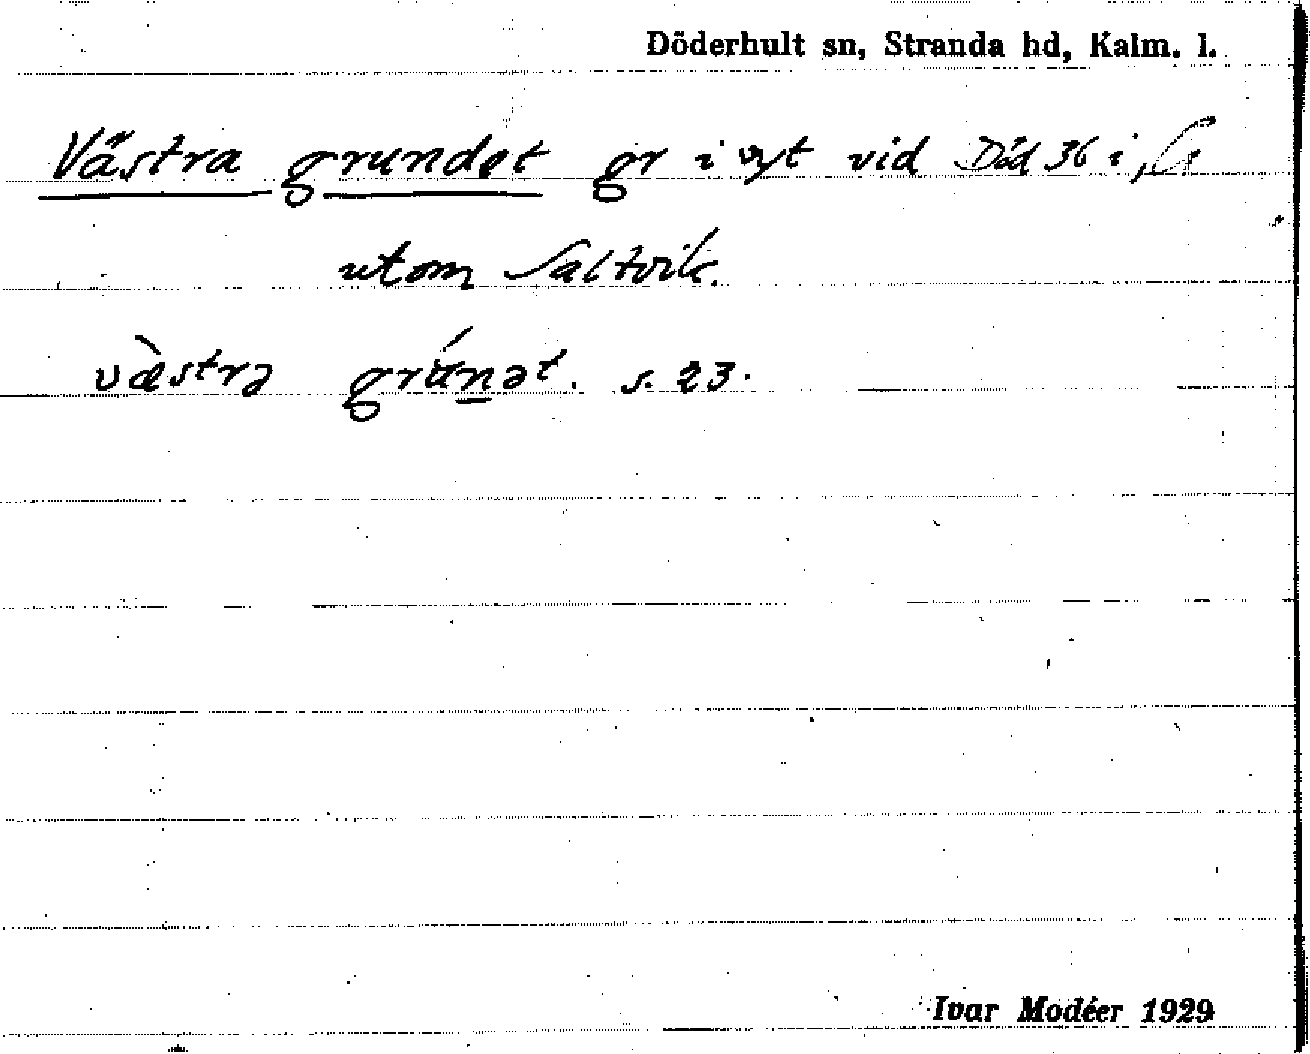 Döderhult sn, Stranda hd, Kalm. l.
Västra grundet gr i vyt vid Död 36 i,
utom Saltvik.
vàestrə grúnət. s. 23.
Ivar Modéer 1929